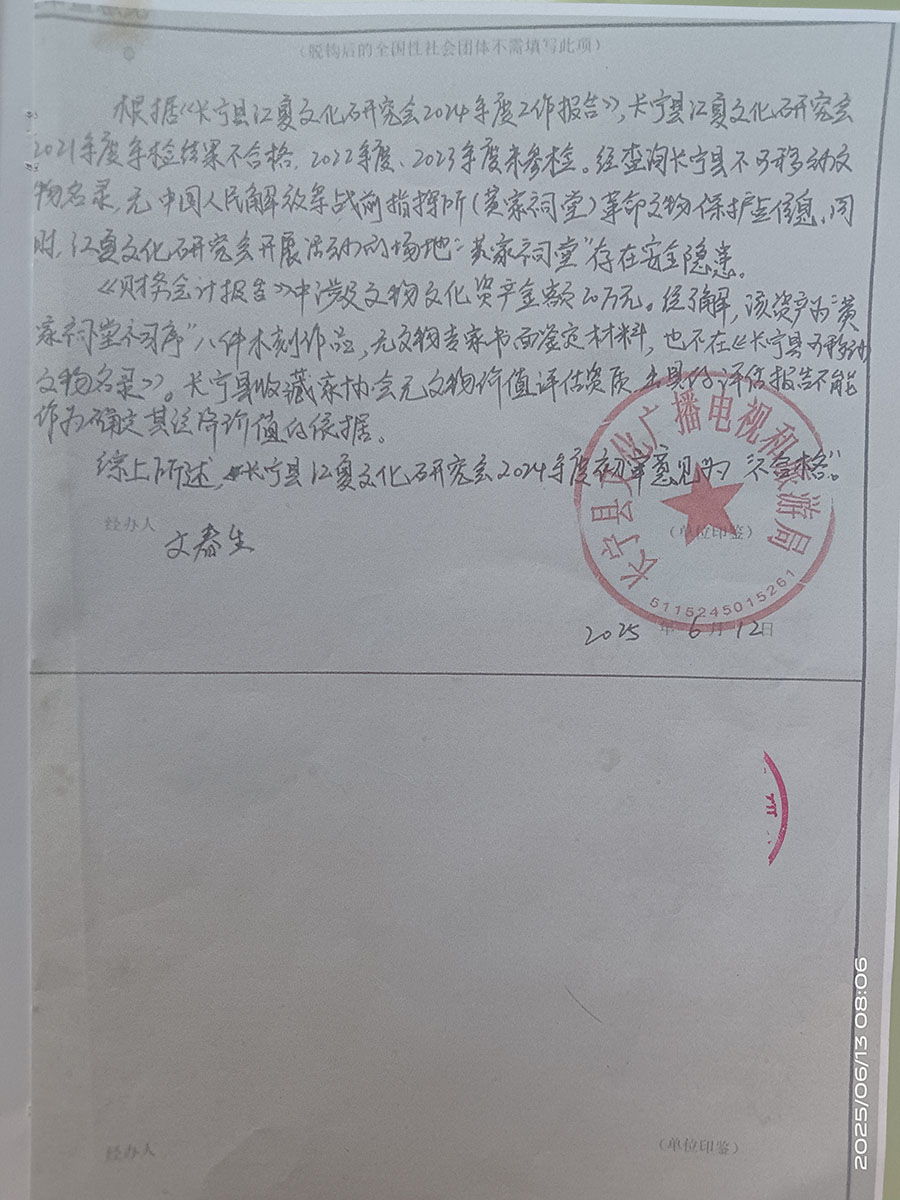 （脱钩后的全国性社会团体不需填写此项）
根据《长宁县江夏文化研究会2024年度工作报告》，长宁县江夏文化研究会
2021年度年检结果不合格，2022年度、2023年度未参检。经查询长宁县不可移动文
物名录，无中国人民解放军战前指挥所（黄家祠堂）革命文物保护点信息，同
时，江夏文化研究会开展活动的场地“黄家祠堂”存在安全隐患。
《财务会计报告》中涉及文物文化资产金额20万元。经了解，该资产为“黄
家祠堂祠序”八件木刻作品，无文物专家书面鉴定材料，也不在《长宁县可移动
文物名录》。长宁县收藏家协会无文物价值评估资质，出具的评估报告不能
作为确定其经济价值的依据。
综上所述，长宁县江夏文化研究会2024年度初审意见为“不合格”。
经办人
文春生
（单位印鉴）
长宁县文化广播电视和旅游局
5115245015261
2025年6月12日
经办人
（单位印鉴）
2025/06/13 08:06